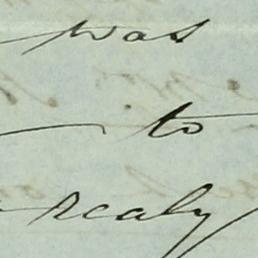 was
to
realy